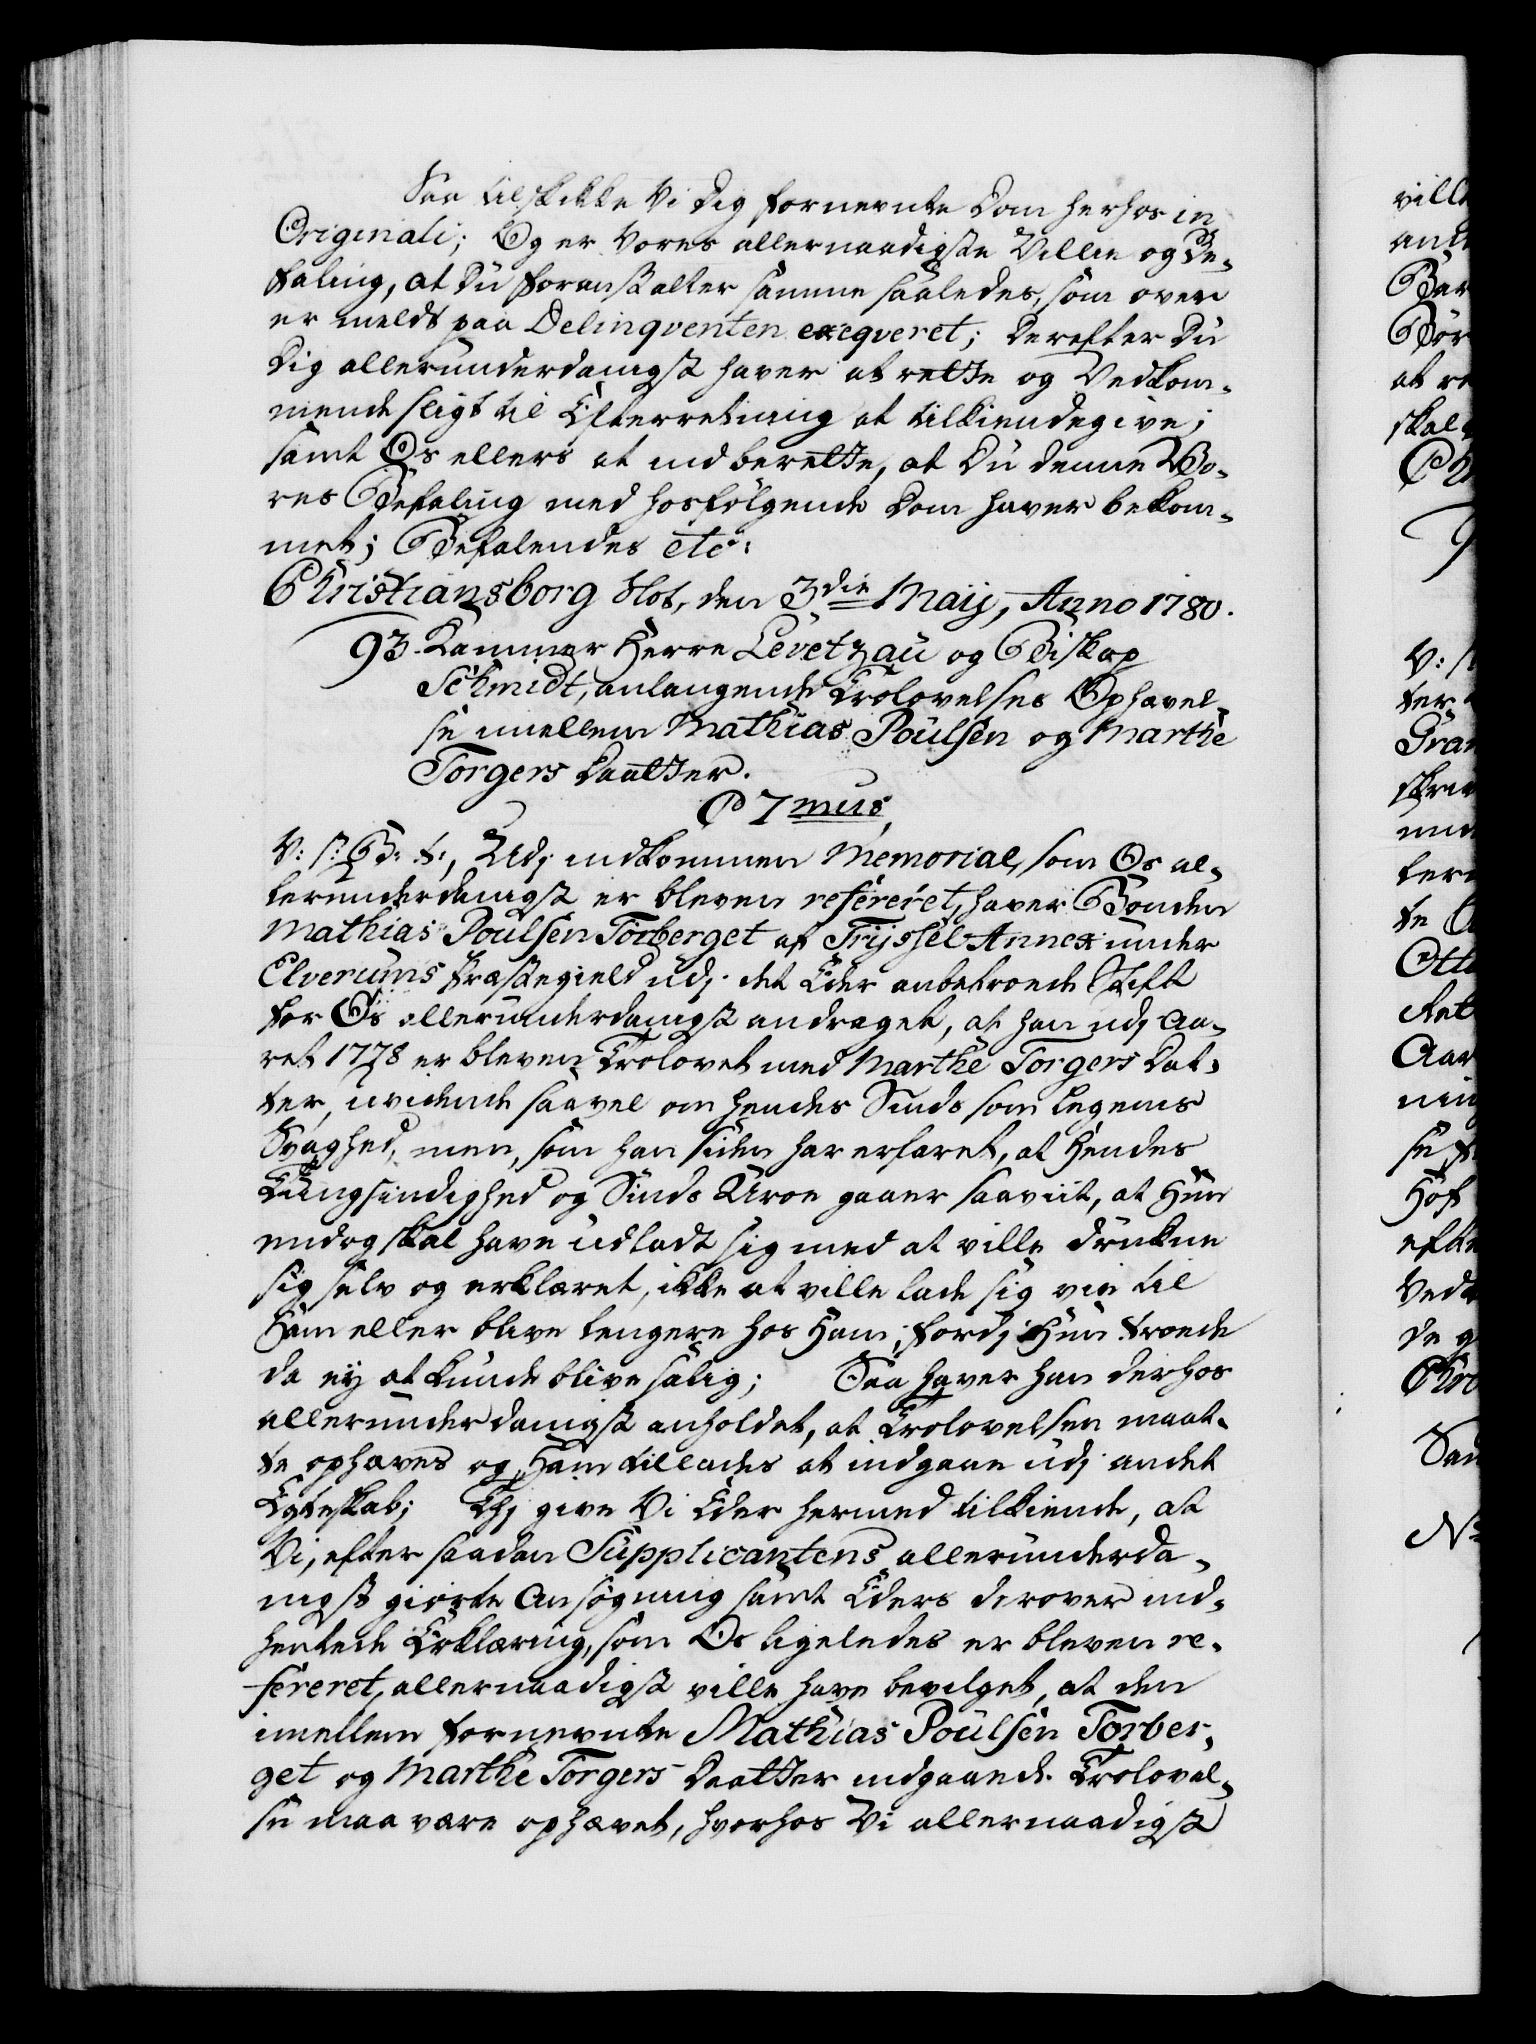 Saa tilskikke Vi Dig fornevnte Dom herhos in
Originali; Og er Vores allernaadigste Villie og Be-
faling, at Du foranstalter samme saaledes, som oven
er meldt paa Delinqventen exeqveret; Derefter Du
Dig allerunderdanigst haver at rette og Vedkom-
mende sligt til Efterretning at tilkiendegive;
samt Os ellers at indberette, at Du denne Vo-
res Befaling med hosfølgende Dom haver bekom-
met; Befalendes etc:
Christiansborg Slot, den 3die Maij, Anno 1780.
93. Kammer Herre Levetzau og Biskop
Schmidt, anlangende Trolovelses Ophævel-
se imellem Mathias Poulsen og Marthe
Torgers Daatter.
C 7mus
V: S: G: T:, Udj indkommen Memorial, som Os al-
lerunderdanigst er bleven refereret, haver Bonden
Mathias Poulsen Torberget af Trÿssel Annex under
Elverums Præstegield udj det Eder anbetroede Stift
for Os allerunderdanigst andraget, at han udj Aa-
ret 1778 er bleven Trolovet med Marthe Torgers Dat-
ter, uvidende saavel om hendes Sinds som Legems
Svaghed, men, som han siden har erfaret, at Hendes
Tungsindighed og Sinds Uroe gaaer saaviit, at Hun
endog skal have udladt sig med at ville drukne
sig selv og erklæret, ikke at ville lade sig vie til
Ham eller blive lengere hos Ham, fordj Hun troede
da ey at kunde blive salig; Saa haver han derhos
allerunderdanigst anholdet, at Trolovelsen maat-
te ophæves og Ham tillades at indgaae udj andet
Egteskab; Thj give Vi Eder hermed tilkiende, at
Vi, efter saadan Supplicantens allerunderda-
nigst giorte Ansøgning samt Eders derover ind-
hentede Erklæring, som Os ligeledes er bleven re-
fereret, allernaadigst ville have bevilget, at den
imellem fornevnte Mathias Poulsen Torber-
get og Marthe Torgers Daatter indgaaede Trolovel-
se maa være ophævet, hvorhos Vi allernaadigst